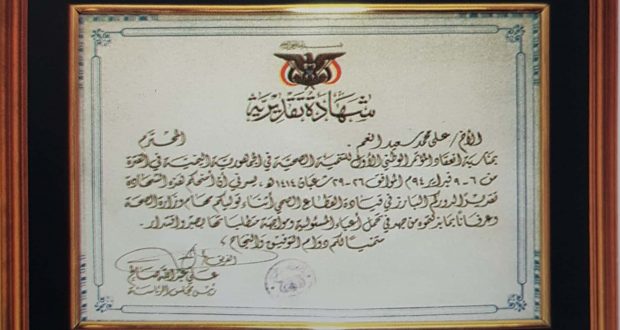 شهادة تقديرية
الأخ/ علي محمد سعيد أنعم المحترم
بمناسبة انعقاد المؤتمر الوطني الأول للتنمية الصحية في الجمهورية اليمنية في الفترة
من ٦-٩ فبراير ٩٤م الموافق ٢٦-٢٩ شعبان ١٤١٤هـ، يسرني أن أمنحكم هذه الشهادة
تقديراً لدوركم البارز في قيادة القطاع الصحي أثناء توليكم مهام وزارة الصحة
وعرفاناً بما بذلتموه من جهد في تحمل أعباء المسئولية ومواجهة متطلباتها بصبر واقتدار.
متمنياً لكم دوام التوفيق والنجاح،
الفريق/
علي عبدالله صالح
رئيس مجلس الرئاسة